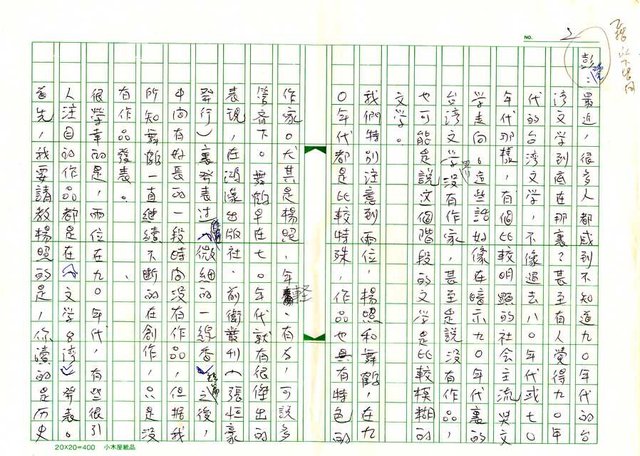 NO. 2
以下皆同
最近，很多人都感到不知道九〇年代的台
湾文学到底在那裏？甚至有人覺得九〇年
代的台湾文学，不像過去八〇年代或七〇
年代那樣，有個比較明顯的社会主流與文
学走向。這些話好像在暗示九〇年代裏的
台湾文学界沒有作家，甚至是説沒有作品，
也可能是説這個階段的文学是比較模糊的
文学。
我們特別注意到兩位，楊照和舞鶴，在九
〇年代都是比較特殊，作品也具有特色的
作家。尤其是楊照，年輕、有才，可説多
管齊下。舞鶴早在七〇年代就有很傑出的
表現，在出版社，前衛叢刊（張恒豪
發行）裏發表过〈微細的一線香〉之後，
中间有好長的一段時间沒有作品，但据我
所知舞鶴一直継續不断的在創作，只是沒
有作品發表。
很榮幸的是，兩位在九〇年代，有些很引
人注目的作品都是在《文学台湾》發表。
首先，我要請教楊照的是，你讀的是历史
20X20=400 小木屋紙品